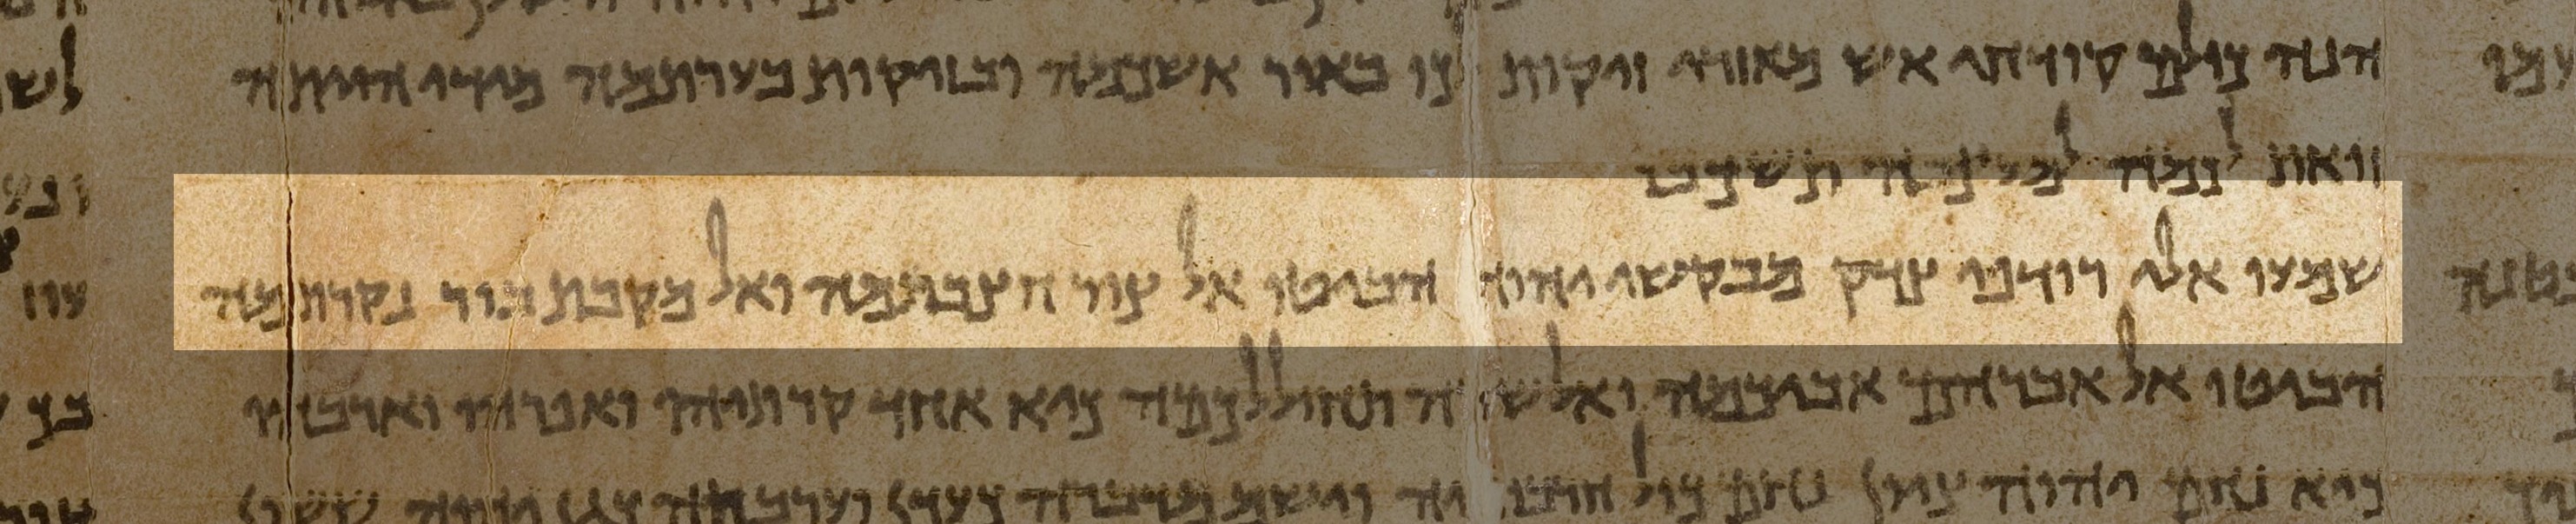 הנה כולכם קודחי אש מאזרי זיקות לכו באור אשכמה ובזיקות בערתמה מידי הייתה
זואת לכמה למעצבה תשכבו
שמעו אלי רודפי צדק מבקשי יהוה הביטו אל צור חצבתמה ואל מקבת בור נקרתמה
הביטו אל אברהם אביכמה ואל שרה תחוללכמה כיא אחד קרתיהו ואפרהו וארבהו
כיא נחם יהוה ציון נחם כול חרבותיה וישם מדברה כעדן וערבתה כגן יהוה ששון